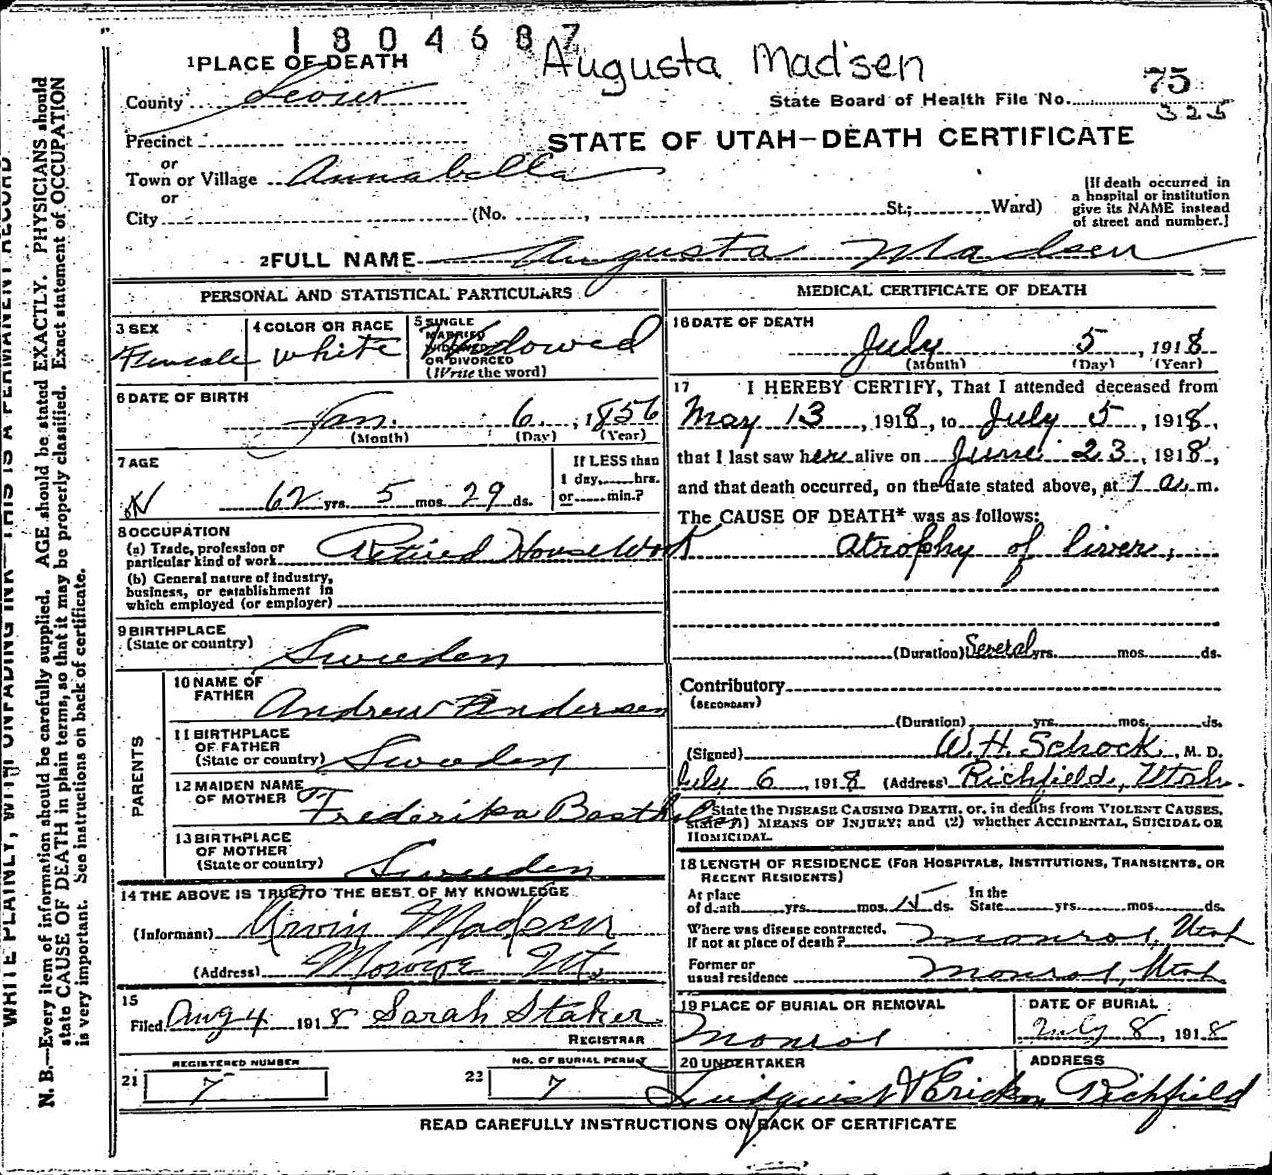 1804687
Augusta Madsen
1 PLACE OF DEATH
75
County Sevier
State Board of Health File No. 325
Precinct
STATE OF UTAH—DEATH CERTIFICATE
or
Town or Village Annabella
or
City (No. , St.; Ward)
[If death occurred in
a hospital or institution
give its NAME instead
of street and number.]
2 FULL NAME Augusta Madsen
PERSONAL AND STATISTICAL PARTICULARS
3 SEX
Female
4 COLOR OR RACE
White
5 SINGLE
MARRIED
WIDOWED
OR DIVORCED
(Write the word)
Widowed
6 DATE OF BIRTH
Jan. 6, 1856
(Month) (Day) (Year)
7 AGE
62 yrs. 5 mos. 29 ds.
If LESS than
1 day, hrs.
or min.?
8 OCCUPATION
(a) Trade, profession or
particular kind of work Retired House Work
(b) General nature of industry,
business, or establishment in
which employed (or employer)
9 BIRTHPLACE
(State or country)
Sweden
PARENTS
10 NAME OF
FATHER
Andrew Andersen
11 BIRTHPLACE
OF FATHER
(State or country) Sweden
12 MAIDEN NAME
OF MOTHER
Frederika
13 BIRTHPLACE
OF MOTHER
(State or country) Sweden
14 THE ABOVE IS TRUE TO THE BEST OF MY KNOWLEDGE
(Informant) Irvin Madsen
(Address) Monroe Ut.
15
Filed Aug 4 1918 Sarah Staker
REGISTRAR
REGISTERED NUMBER
21 7
NO. OF BURIAL PERMT
22 7
MEDICAL CERTIFICATE OF DEATH
16 DATE OF DEATH
July 5, 1918
(Month) (Day) (Year)
17 I HEREBY CERTIFY, That I attended deceased from
May 13, 1918, to July 5, 1918,
that I last saw her alive on June 23, 1918,
and that death occurred, on the date stated above, at 1 a. m.
The CAUSE OF DEATH* was as follows:
atrophy of liver,
(Duration) Several yrs. mos. ds.
Contributory
(SECONDARY)
(Duration) yrs. mos. ds.
(Signed) W. H. Schock, M. D.
July 6, 1918 (Address) Richfield, Utah.
State the DISEASE CAUSING DEATH, or, in deaths from VIOLENT CAUSES,
state (1) MEANS OF INJURY; and (2) whether ACCIDENTAL, SUICIDAL OR
HOMICIDAL.
18 LENGTH OF RESIDENCE (FOR HOSPITALS, INSTITUTIONS, TRANSIENTS, OR
RECENT RESIDENTS)
At place
of death yrs. mos. 15 ds.
In the
State yrs. mos. ds.
Where was disease contracted,
If not at place of death? Monroe, Utah
Former or
usual residence Monroe, Utah
19 PLACE OF BURIAL OR REMOVAL
Monroe
DATE OF BURIAL
July 8, 1918
20 UNDERTAKER
Lindquist & Erickson
ADDRESS
Richfield
READ CAREFULLY INSTRUCTIONS ON BACK OF CERTIFICATE
WRITE PLAINLY, WITH UNFADING INK—THIS IS A PERMANENT RECORD
N. B.—Every item of information should be carefully supplied. AGE should be stated EXACTLY. PHYSICIANS should
state CAUSE OF DEATH in plain terms, so that it may be properly classified. Exact statement of OCCUPATION
is very important. See instructions on back of certificate.